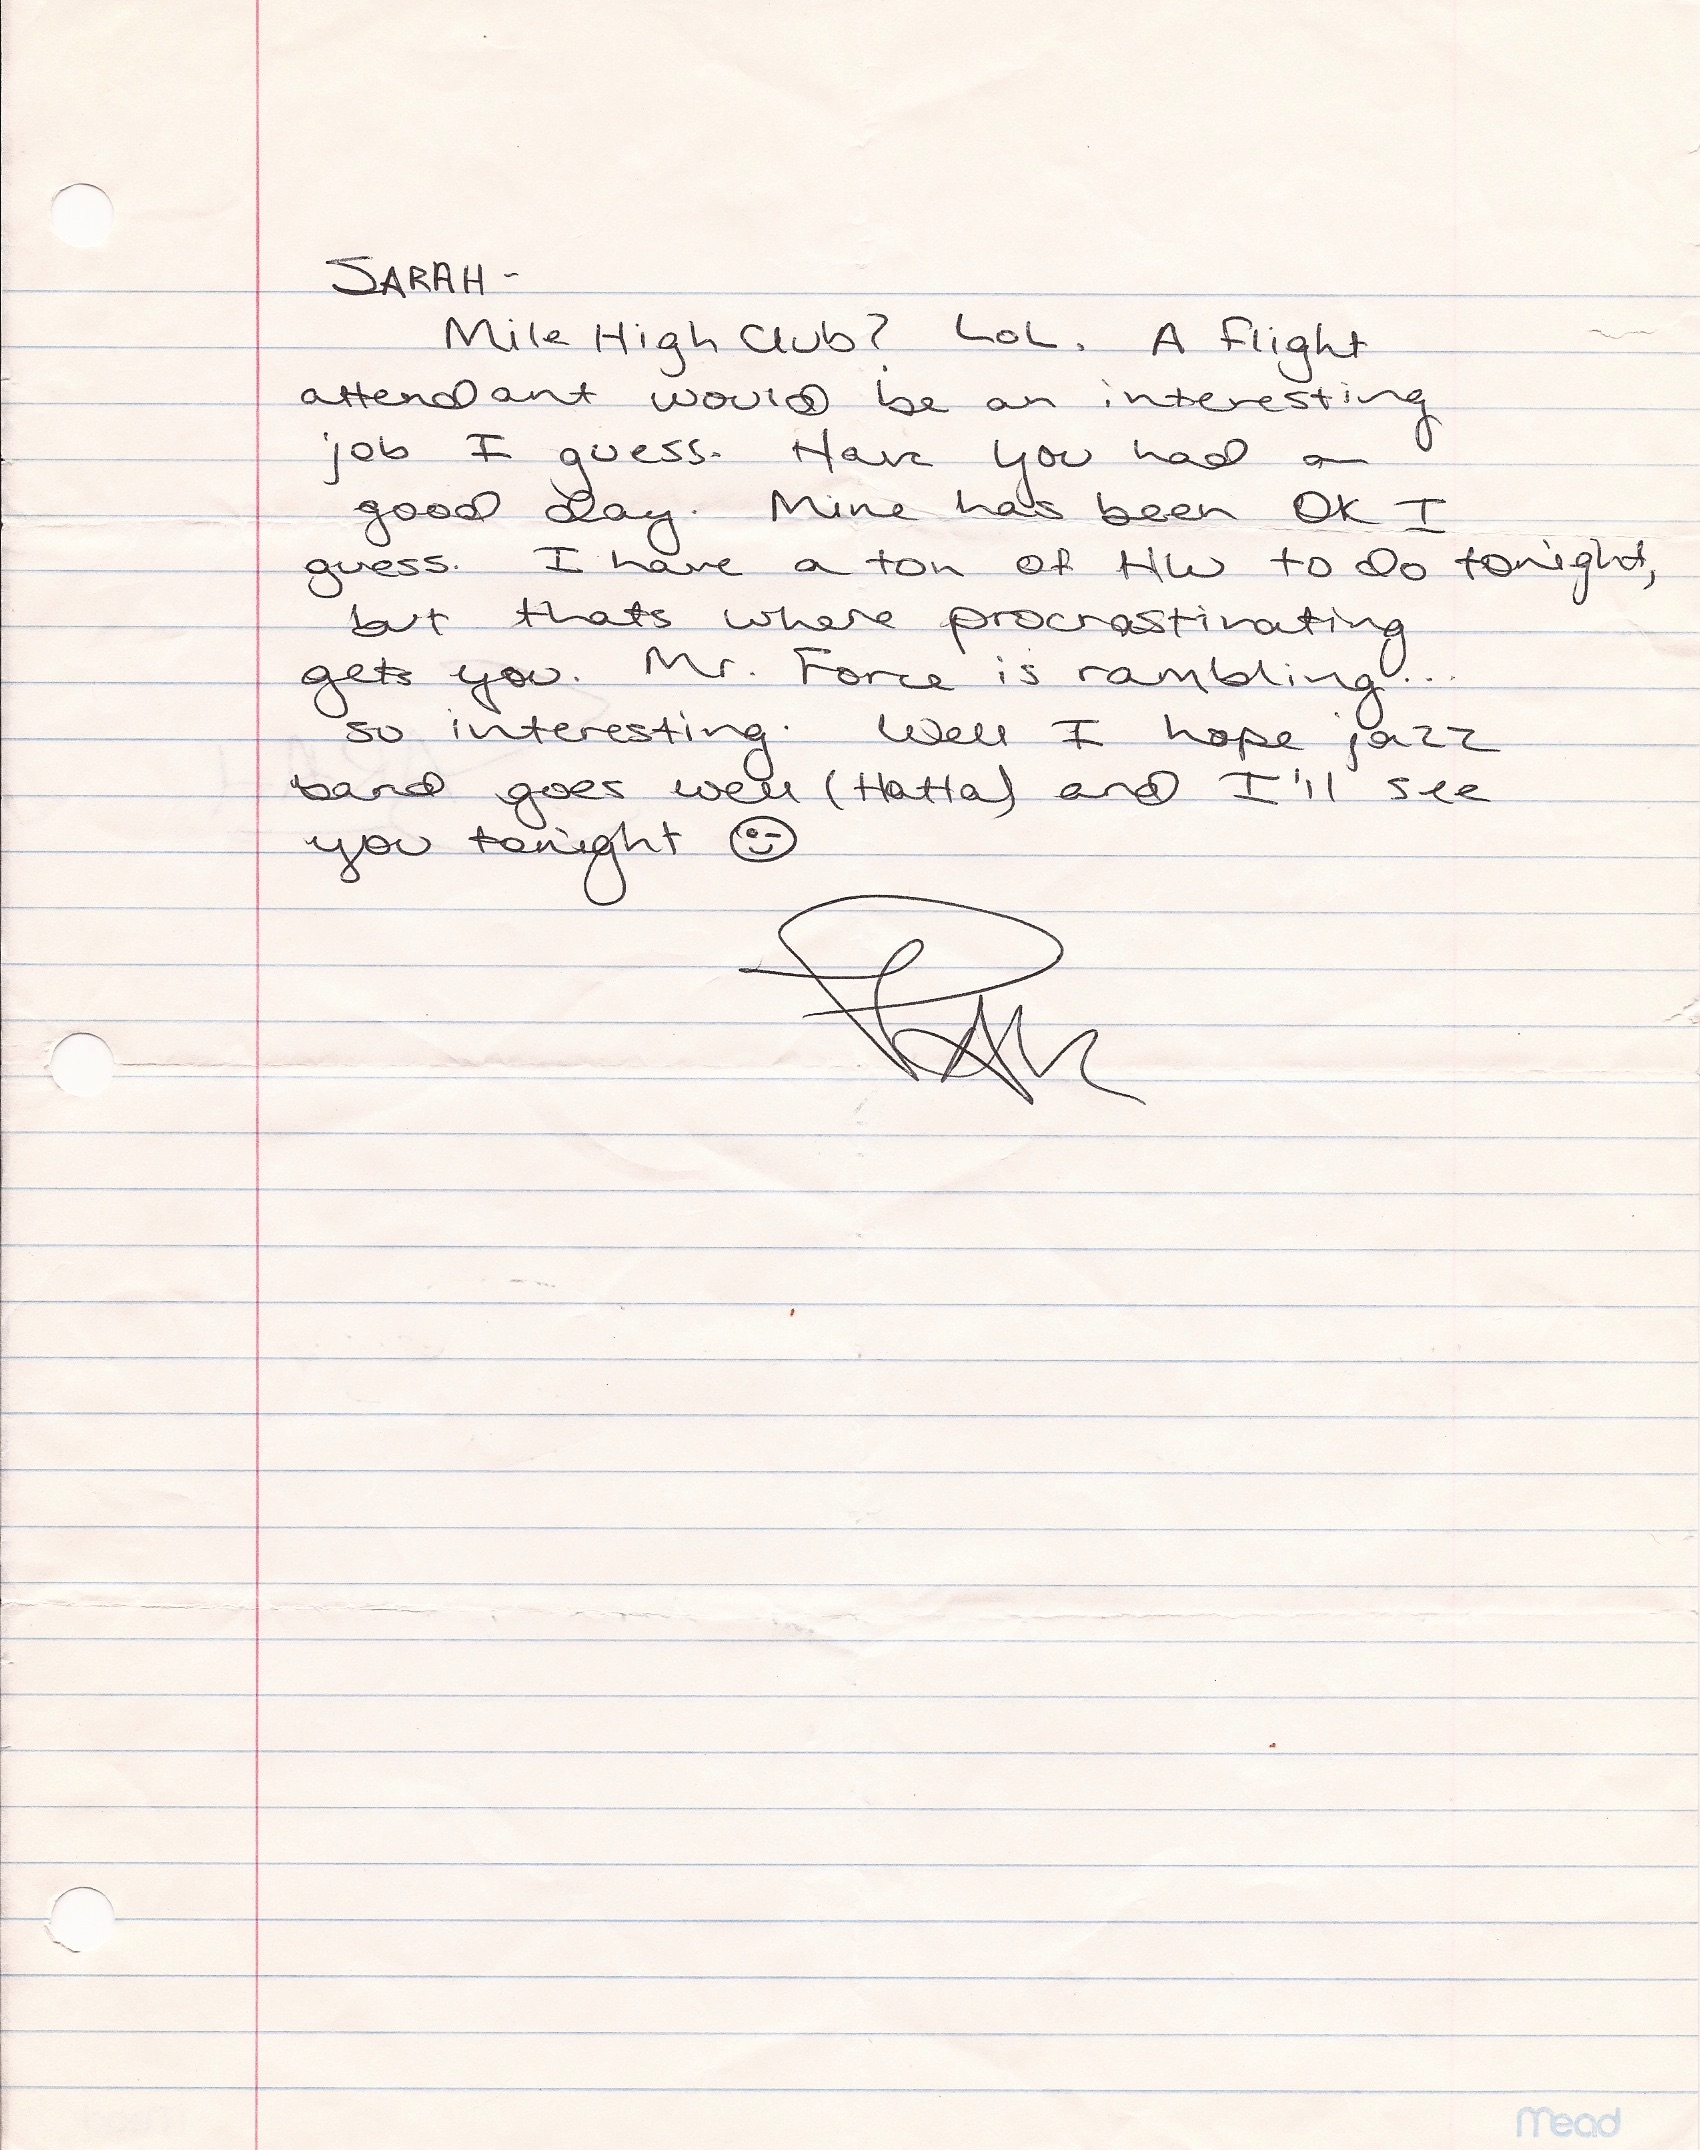 SARAH -
Mile High Club? LOL. A flight
attendant would be an interesting
job I guess. Have you had a
good day. Mine has been OK I
guess. I have a ton of HW to do tonight,
but thats where procrastinating
gets you. Mr. Force is rambling...
so interesting. Well I hope jazz
band goes well (HaHa) and I'll see
you tonight
Mead